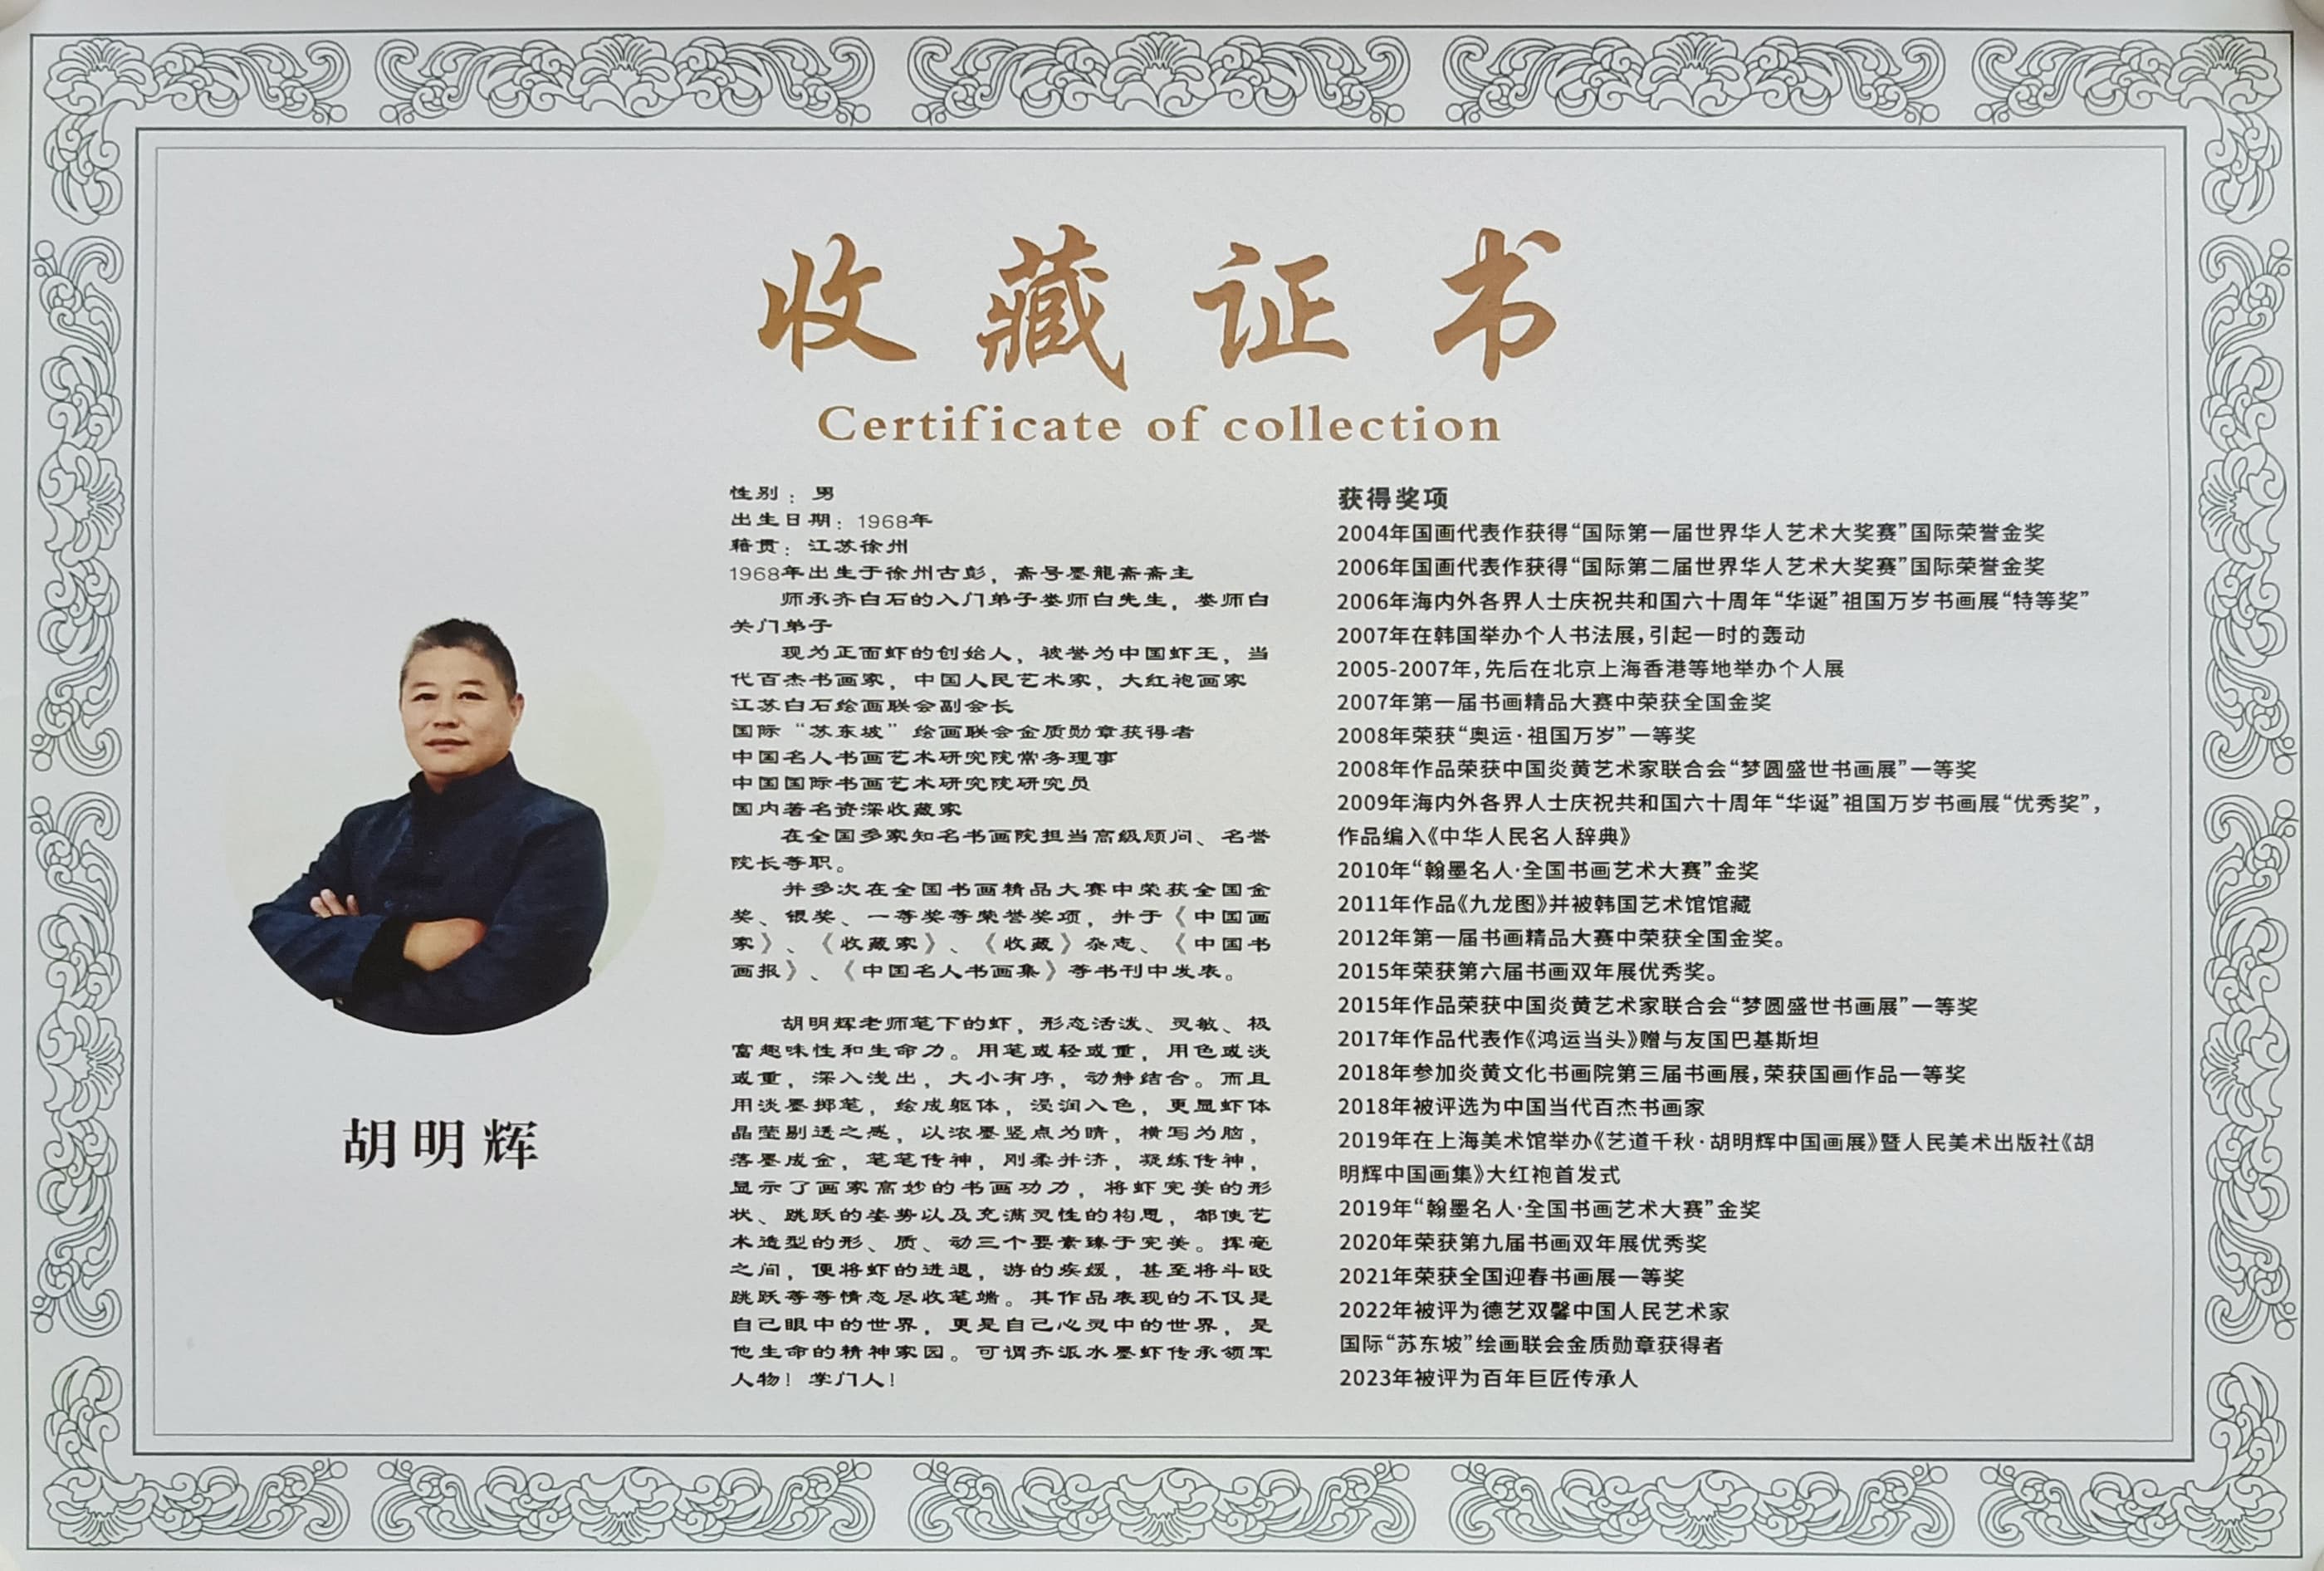 收藏证书
Certificate of collection
胡明辉
性别：男
出生日期：1968年
籍贯：江苏徐州
1968年出生于徐州古彭，斋号墨龍斋斋主
师承齐白石的入门弟子娄师白先生，娄师白
关门弟子
现为正面虾的创始人，被誉为中国虾王，当
代百杰书画家，中国人民艺术家，大红袍画家
江苏白石绘画联会副会长
国际“苏东坡”绘画联会金质勋章获得者
中国名人书画艺术研究院常务理事
中国国际书画艺术研究院研究员
国内著名资深收藏家
在全国多家知名书画院担当高级顾问、名誉
院长等职。
并多次在全国书画精品大赛中荣获全国金
奖、银奖、一等奖等荣誉奖项，并于《中国画
家》、《收藏家》、《收藏》杂志、《中国书
画报》、《中国名人书画集》等书刊中发表。
胡明辉老师笔下的虾，形态活泼、灵敏、极
富趣味性和生命力。用笔或轻或重，用色或淡
或重，深入浅出，大小有序，动静结合。而且
用淡墨掷笔，绘成躯体，浸润入色，更显虾体
晶莹剔透之感，以浓墨竖点为睛，横写为脑，
落墨成金，笔笔传神，刚柔并济，凝练传神，
显示了画家高妙的书画功力，将虾完美的形
状、跳跃的姿势以及充满灵性的构思，都使艺
术造型的形、质、动三个要素臻于完美。挥毫
之间，便将虾的进退，游的疾缓，甚至将斗殴
跳跃等等情态尽收笔端。其作品表现的不仅是
自己眼中的世界，更是自己心灵中的世界，是
他生命的精神家园。可谓齐派水墨虾传承领军
人物！掌门人！
获得奖项
2004年国画代表作获得“国际第一届世界华人艺术大奖赛”国际荣誉金奖
2006年国画代表作获得“国际第二届世界华人艺术大奖赛”国际荣誉金奖
2006年海内外各界人士庆祝共和国六十周年“华诞”祖国万岁书画展“特等奖”
2007年在韩国举办个人书法展，引起一时的轰动
2005-2007年，先后在北京上海香港等地举办个人展
2007年第一届书画精品大赛中荣获全国金奖
2008年荣获“奥运·祖国万岁”一等奖
2008年作品荣获中国炎黄艺术家联合会“梦圆盛世书画展”一等奖
2009年海内外各界人士庆祝共和国六十周年“华诞”祖国万岁书画展“优秀奖”，
作品编入《中华人民名人辞典》
2010年“翰墨名人·全国书画艺术大赛”金奖
2011年作品《九龙图》并被韩国艺术馆馆藏
2012年第一届书画精品大赛中荣获全国金奖。
2015年荣获第六届书画双年展优秀奖。
2015年作品荣获中国炎黄艺术家联合会“梦圆盛世书画展”一等奖
2017年作品代表作《鸿运当头》赠与友国巴基斯坦
2018年参加炎黄文化书画院第三届书画展，荣获国画作品一等奖
2018年被评选为中国当代百杰书画家
2019年在上海美术馆举办《艺道千秋·胡明辉中国画展》暨人民美术出版社《胡
明辉中国画集》大红袍首发式
2019年“翰墨名人·全国书画艺术大赛”金奖
2020年荣获第九届书画双年展优秀奖
2021年荣获全国迎春书画展一等奖
2022年被评为德艺双馨中国人民艺术家
国际“苏东坡”绘画联会金质勋章获得者
2023年被评为百年巨匠传承人